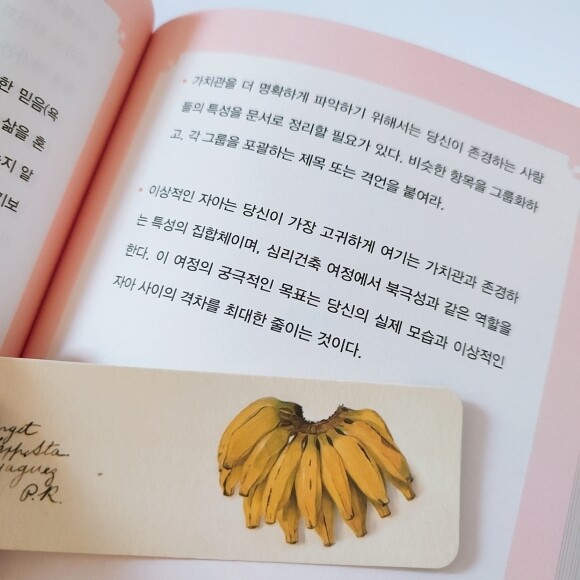 한 믿음(욕
삶을 훈
지 알
기보
• 가치관을 더 명확하게 파악하기 위해서는 당신이 존경하는 사람
들의 특성을 문서로 정리할 필요가 있다. 비슷한 항목을 그룹화하
고, 각 그룹을 포괄하는 제목 또는 격언을 붙여라.
• 이상적인 자아는 당신이 가장 고귀하게 여기는 가치관과 존경하
는 특성의 집합체이며, 심리건축 여정에서 북극성과 같은 역할을
한다. 이 여정의 궁극적인 목표는 당신의 실제 모습과 이상적인
자아 사이의 격차를 최대한 줄이는 것이다.
P.R.